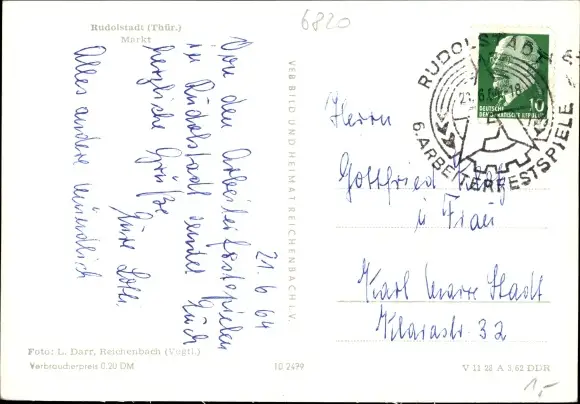 Rudolstadt (Thür.)
Markt
6820
21. 6. 64
Von den Arbeiterfestspielen
in Rudolstadt sendet Euch
herzliche Grüße
Eure Loth.
Alles andere mündlich
VEB BILD UND HEIMAT REICHENBACH I. V.
RUDOLSTADT
6. ARBEITERFESTSPIELE
DEUTSCHE
DEMOKRATISCHE REPUBLIK
10
Herrn
Gottfried
u Frau
Karl Marx Stadt
Klarastr. 32
Foto: L. Darr, Reichenbach (Vogtl.)
Verbraucherpreis 0.20 DM
10 2499
V 11 28 A 5/62 DDR
1,-